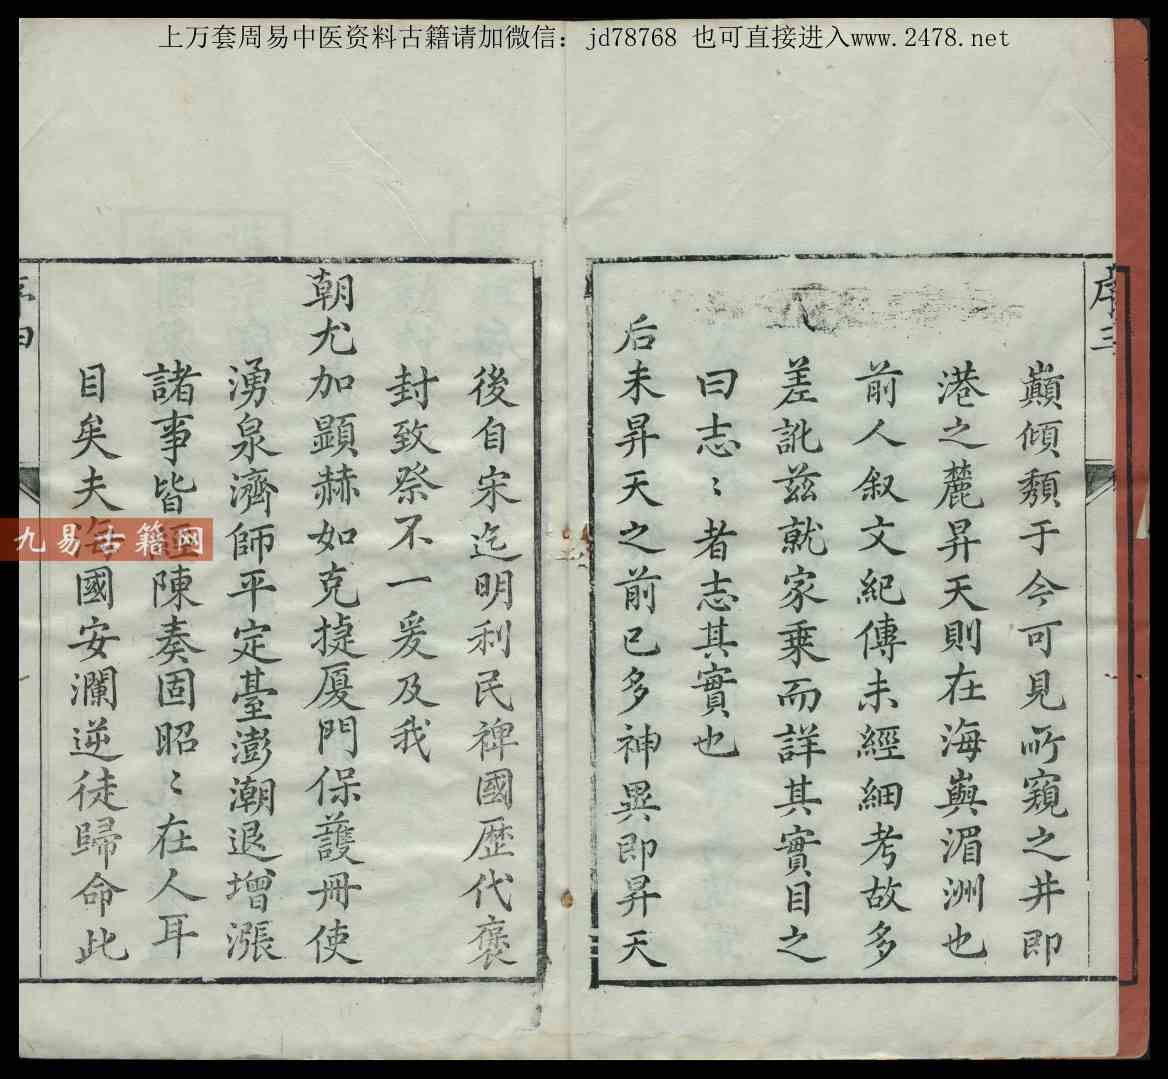 上万套周易中医资料古籍请加微信：jd78768 也可直接进入www.2478.net
序三
巔傾頽于今可見所窺之井即
港之麓昇天則在海嶼湄洲也
前人叙文紀傳未經細考故多
差訛兹就家乗而詳其實目之
曰志〻者志其實也
后未昇天之前已多神異即昇天
後自宋迄明利民裨國歷代褒
封致祭不一爰及我
朝尤加顯赫如克㨗厦門保護冊使
湧泉濟師平定臺澎潮退增漲
諸事皆陳奏固昭〻在人耳
目矣夫海國安瀾逆徒歸命此
序四
九易古籍网